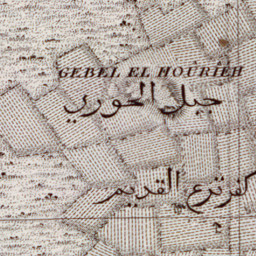 GEBEL EL HOÛRIÉH
جبل الحوري
كفر ترع القديم